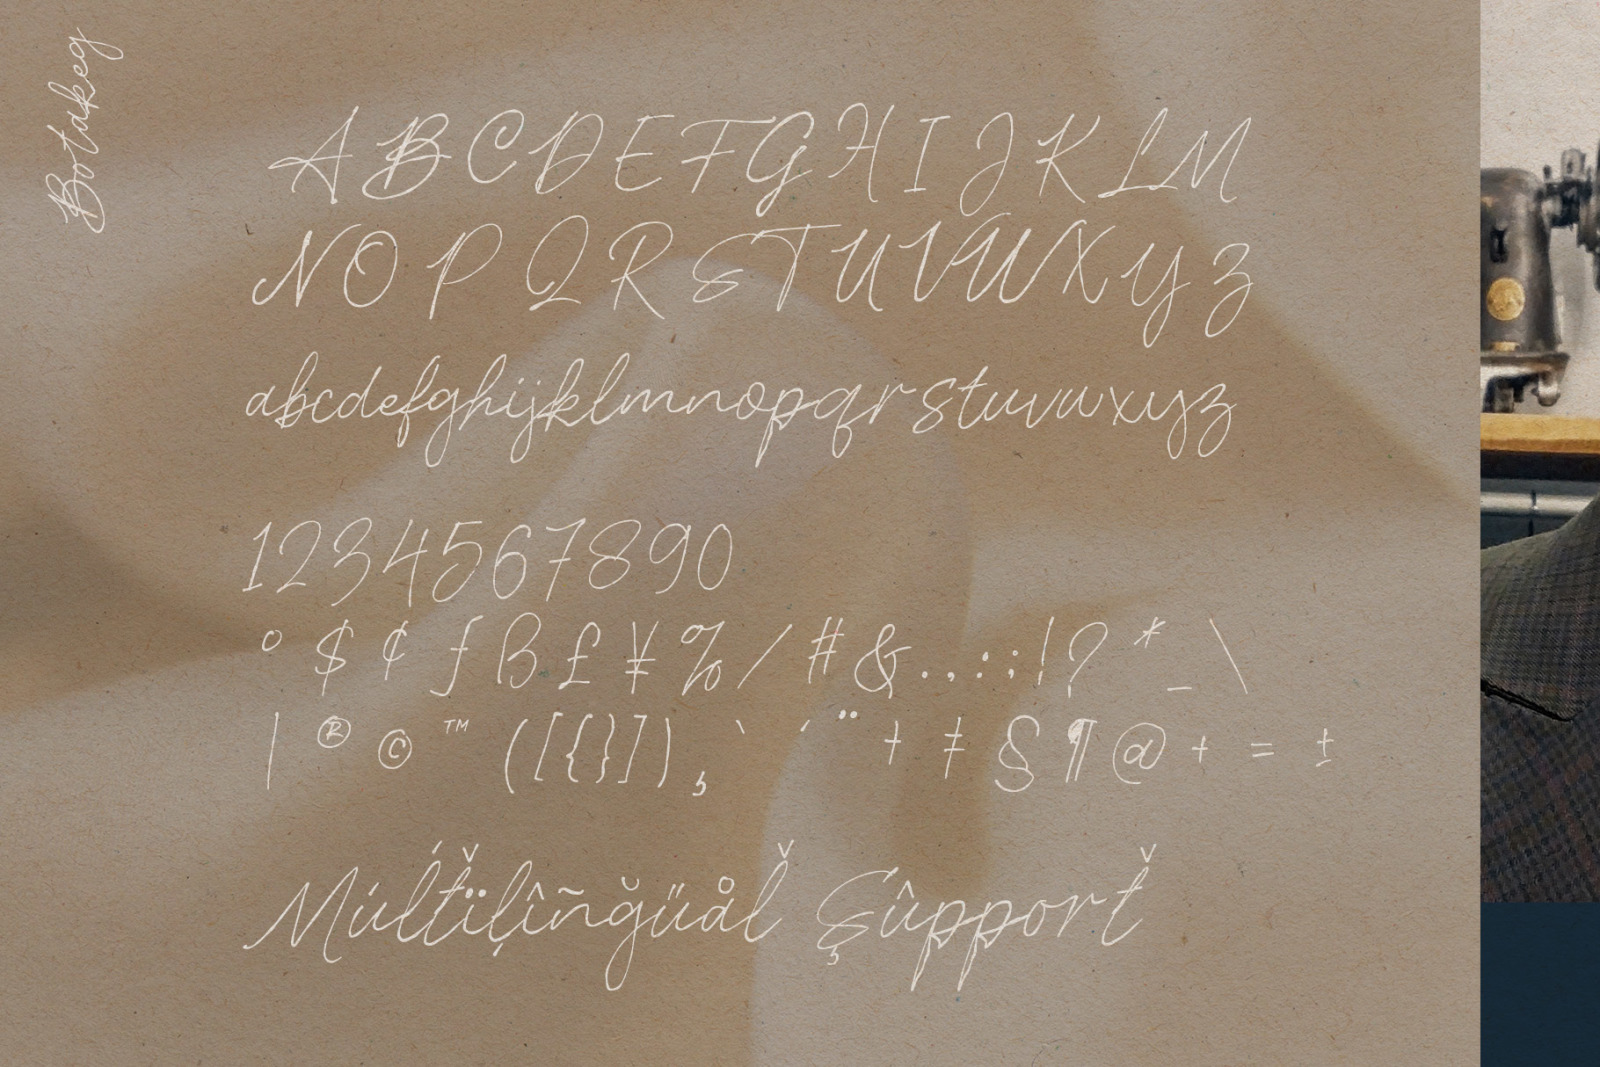 Botakeg
A B C D E F G H I J K L M
N O P Q R S T U V W X Y Z
abcdefghijklmnopqrstuvwxyz
1234567890
° $ ¢ ƒ ß £ ¥ % / # & . , : ; ! ? * _ \
| ® © ™ ( [ { } ] ) ¸ ` ´ ¨ † ‡ § ¶ @ + = ±
Múlťïļîñğűåľ Şûpporť